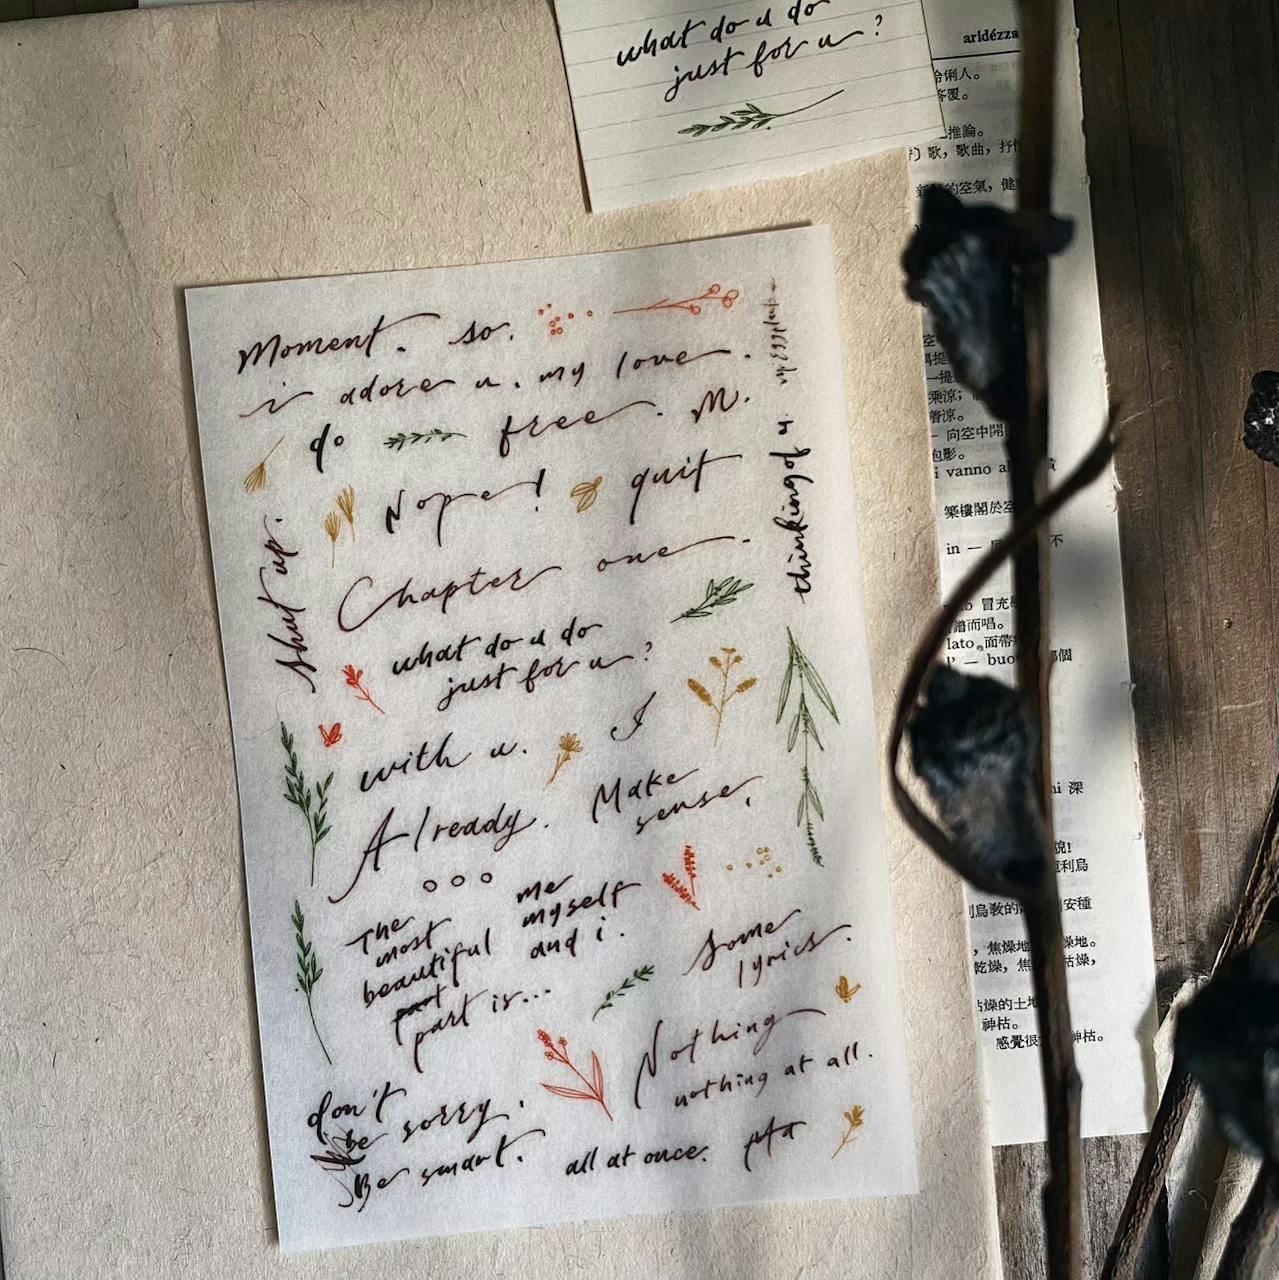 what do u do
just for u?
aridézza
伶俐人。
答覆。
推論。
歌，歌曲，抒
的空氣，健
Moment. so.
i adore u. my love.
do free. M.
Nope! quit
thinking of u.
shut up.
Chapter one.
what do u do
just for u?
with u. I
Already. Make
sense.
The
most
beautiful
part
part is...
me
myself
and i.
some
lyrics.
Nothing
nothing at all.
don't
be sorry.
Be smart. all at once.
乘涼；
着涼。
向空中開
泡影。
i vanno
築樓閣於空
in —
冒充
譜而唱。
lato，面帶
l' — buo
深
利烏
安種
，焦燥地
燥地。
乾燥，焦
枯燥，
枯燥的土地
神枯。
感覺很
神枯。